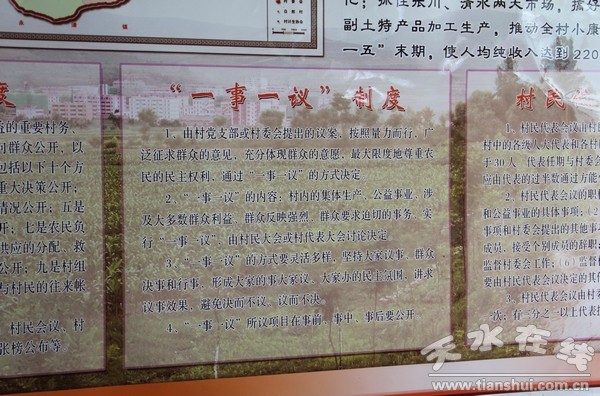 永清镇
村界
村庄
村居委会
村镇
化；抓住东川、清水两大市场，搞好
副土特产品加工生产，推动全村小康
一五”末期，使人均纯收入达到220
度
的重要村务，
向群众公开，以
包括以下十个方
重大决策公开；
情况公开；五是
开；七是农民负
供应的分配、救
公开；九是村组
与村民的往来帐
村民会议、村
张榜公布等
“一事一议”制度
1、由村党支部或村委会提出的议案，按照量力而行，广
泛征求群众的意见，充分体现群众的意愿，最大限度地尊重农
民的民主权利，通过“一事一议”的方式决定
2、“一事一议”的内容：村内的集体生产、公益事业、涉
及大多数群众利益、群众反映强烈、群众要求迫切的事务，实
行“一事一议”，由村民大会或村代表大会讨论决定
3、“一事一议”的方式要灵活多样，坚持大家议事、群众
决事和行事，形成大家的事大家议、大家办的民主氛围，讲求
议事效果，避免决而不议、议而不决
4、“一事一议”所议项目在事前、事中、事后要公开
村民
1、村民代表会议由村
村中的各级人大代表和各村
于30人 代表任期与村委会
应由代表的过半数通方能
2、村民代表会议的职
和公益事业的具体事项；(2)
事项和村委会提出的其他事
成员，接受个别成员的辞职；
监督村委会工作；(6)监督
要由村民代表会议决定的其
3、村民代表会议由村
一次；有三分之一以上代表提
天水在线
www.tianshui.com.cn